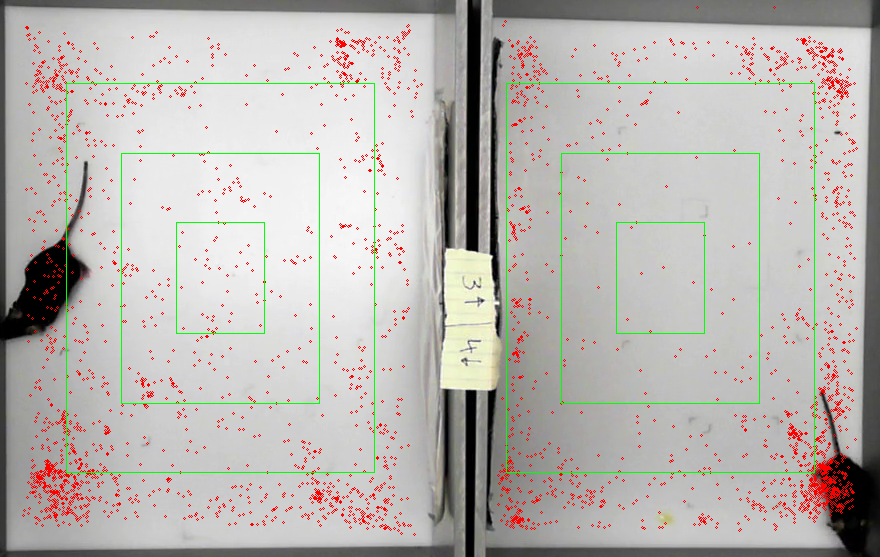 3↑
4↓